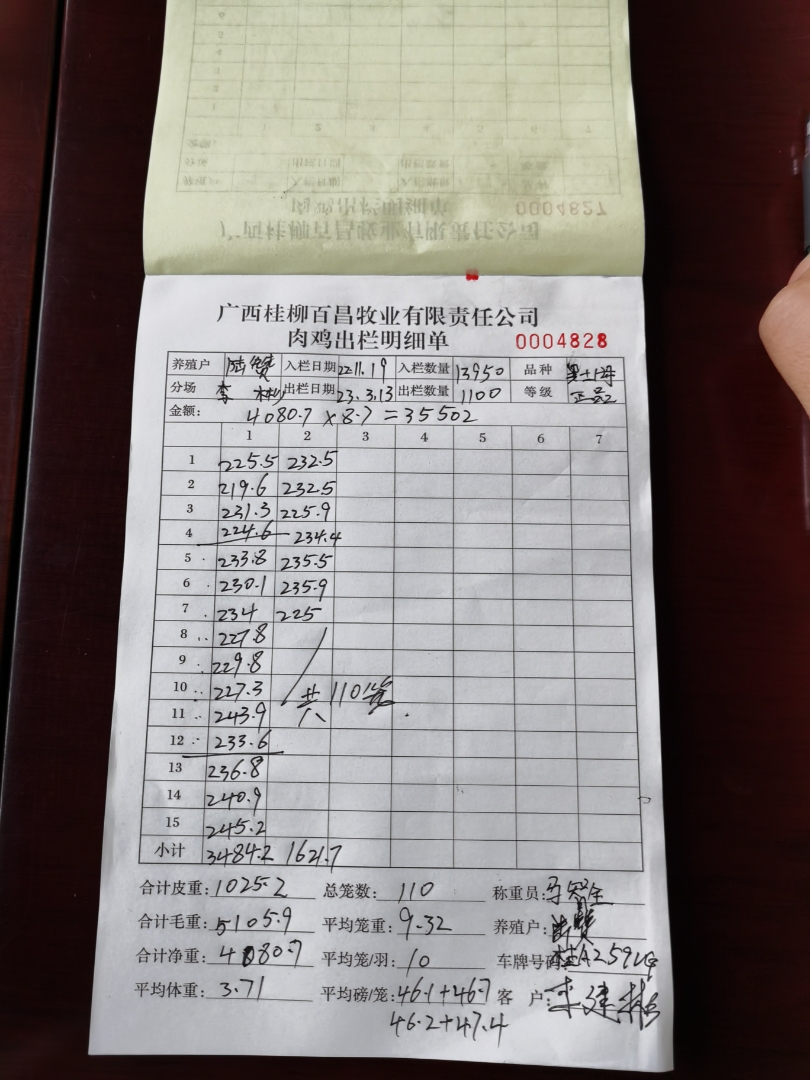 广西桂柳百昌牧业有限责任公司
肉鸡出栏明细单 0004828
养殖户 陆 入栏日期 22.11.19 入栏数量 13950 品种
分场 李 出栏日期 23.3.13 出栏数量 1100 等级 正品2
金额: 4080.7 × 8.7 = 35502
1 2 3 4 5 6 7
1 225.5 232.5
2 219.6 232.5
3 231.3 225.9
4 224.6 234.4
5 233.8 235.5
6 230.1 235.9
7 234 225
8 227.8
9 229.8
10 227.3 共110笼
11 243.9
12 233.6
13 236.8
14 240.9
15 245.2
小计 3484.2 1621.7
合计皮重: 1025.2 总笼数: 110 称重员:
合计毛重: 5105.9 平均笼重: 9.32 养殖户:
合计净重: 4080.7 平均笼/羽: 10 车牌号码:
平均体重: 3.71 平均磅/笼: 46.1+46.7 客 户: 李建
46.2+47.4